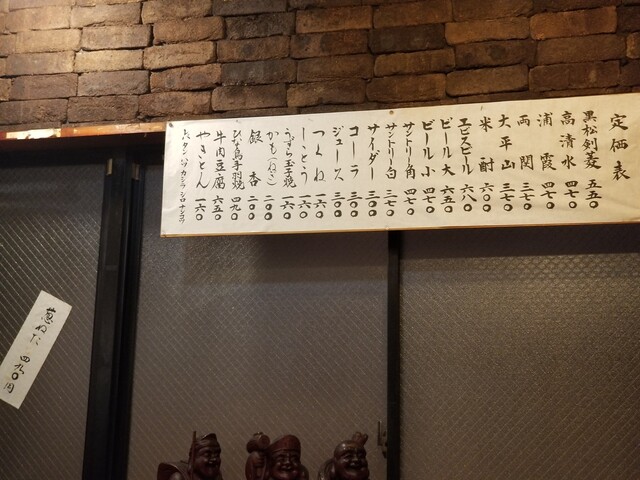 定価表
黒松剣菱 五五〇
高清水 四七〇
浦霞 四七〇
両関 三七〇
大平山 三七〇
米酎 六〇〇
エビスビール 六八〇
ビール大 六五〇
ビール小 四七〇
サントリー角 四七〇
サントリー白 三七〇
サイダー 三〇〇
コーラ 三〇〇
ジュース 三〇〇
つくね 一六〇
ししとう 一六〇
うずら玉子焼 一六〇
かも(ねこ) 二〇〇
銀杏 二〇〇
ひな鳥手羽焼 四九〇
牛肉豆腐 六五〇
やきとん 一六〇
葱ぬた 四九〇円